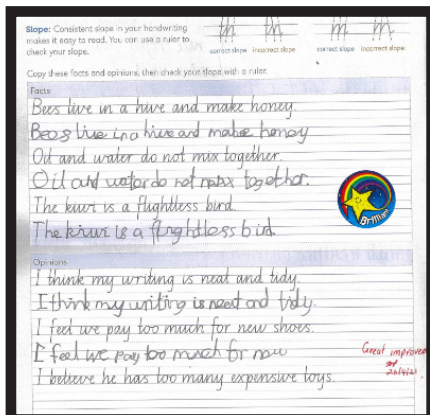 Slope: Consistent slope in your handwriting
makes it easy to read. You can use a ruler to
check your slope.
th th m m
correct slope incorrect slope correct slope incorrect slope
Copy these facts and opinions, then check your slope with a ruler.
Facts
Bees live in a hive and make honey.
Beos live in a hive and make honey
Oil and water do not mix together.
Oil and water do not mix together.
The kiwi is a flightless bird.
The kiwi is a flightless bird.
Brilliant
Opinions
I think my writing is neat and tidy.
I think my writing is neat and tidy.
I feel we pay too much for new shoes.
I feel we pay too much for now
Great improve
I believe he has too many expensive toys.